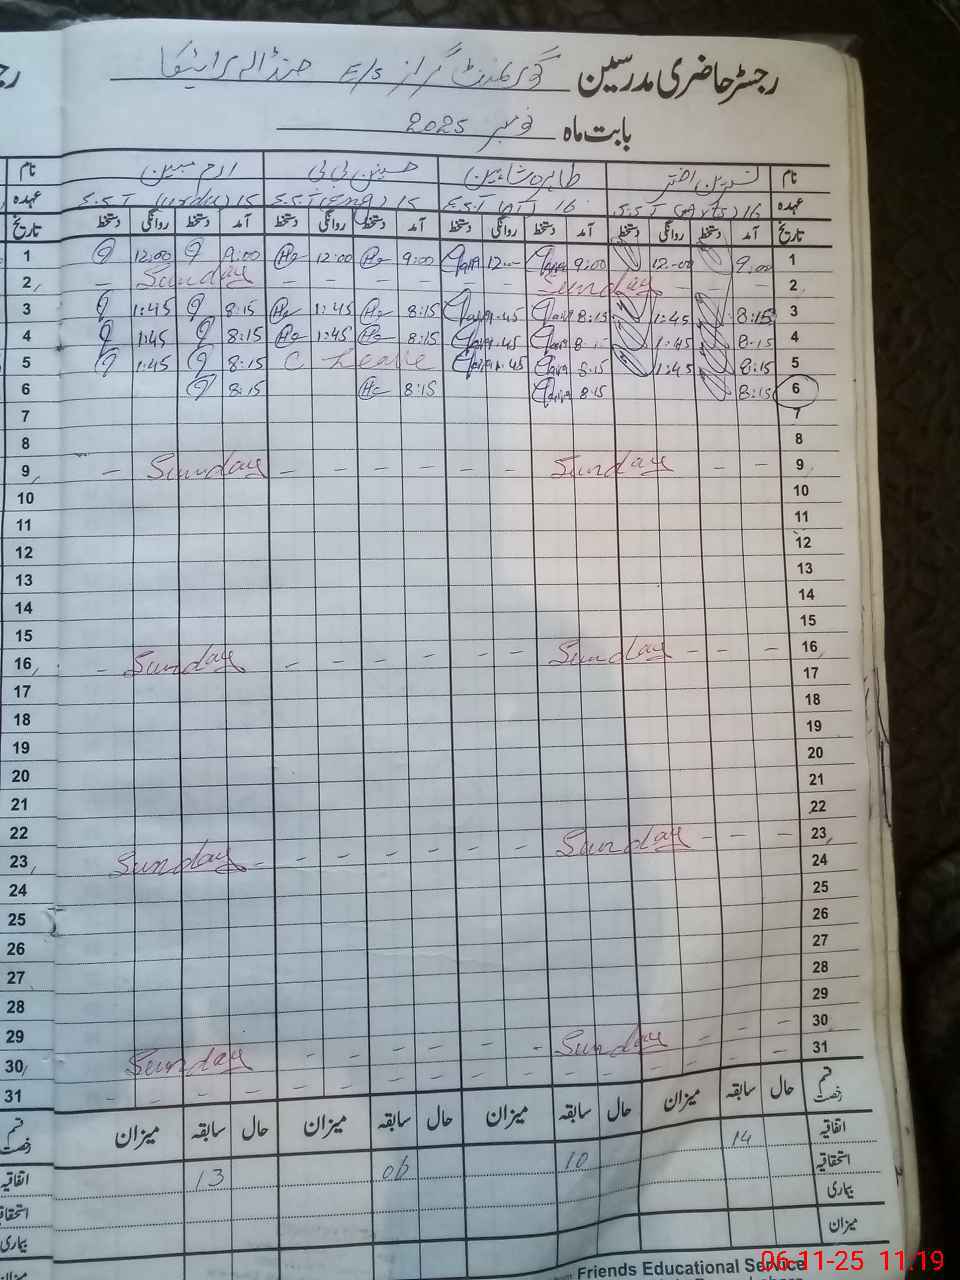 رجسٹر حاضری مدرسین گورنمنٹ گرلز E/S
بابت ماہ نومبر 2025
نام نسرین اختر طاہرہ شاہین حسینہ بی بی ارم مبین نام
عہدہ S.S.T (Arts) 16 E.S.T 16 S.S.T (Eng) 15 S.S.T (Urdu) 15 عہدہ
تاریخ آمد دستخط روانگی دستخط آمد دستخط روانگی دستخط آمد دستخط روانگی دستخط آمد دستخط روانگی دستخط تاریخ
1 9:00 12:00 9:00 12:- 9:00 12:00 9:00 12:00 1
2 Sunday - - - - - - Sunday - 2
3 8:15 1:45 8:15 1:45 8:15 1:45 8:15 1:45 3
4 8:15 1:45 8:15 1:45 8:15 1:45 8:15 1:45 4
5 8:15 1:45 8:15 1:45 C Leave 8:15 1:45 5
6 8:15 8:15 8:15 8:15 6
7 7
8 8
9 - - Sunday - - - - - - Sunday - 9
10 10
11 11
12 12
13 13
14 14
15 15
16 - - - Sunday - - - - - - Sunday - 16
17 17
18 18
19 19
20 20
21 21
22 22
23 - - - Sunday - - - - - - - Sunday 23
24 24
25 25
26 26
27 27
28 28
29 29
30 - - - Sunday - - - - - - Sunday 30
31 - - - - - - - - - - - - 31
قسم رخصت حال سابقہ میزان حال سابقہ میزان حال سابقہ میزان حال سابقہ میزان قسم رخصت
اتفاقیہ 14 10 06 13 اتفاقیہ
استحقاقیہ
بیماری
میزان
Friends Educational Service
06-11-25 11:19